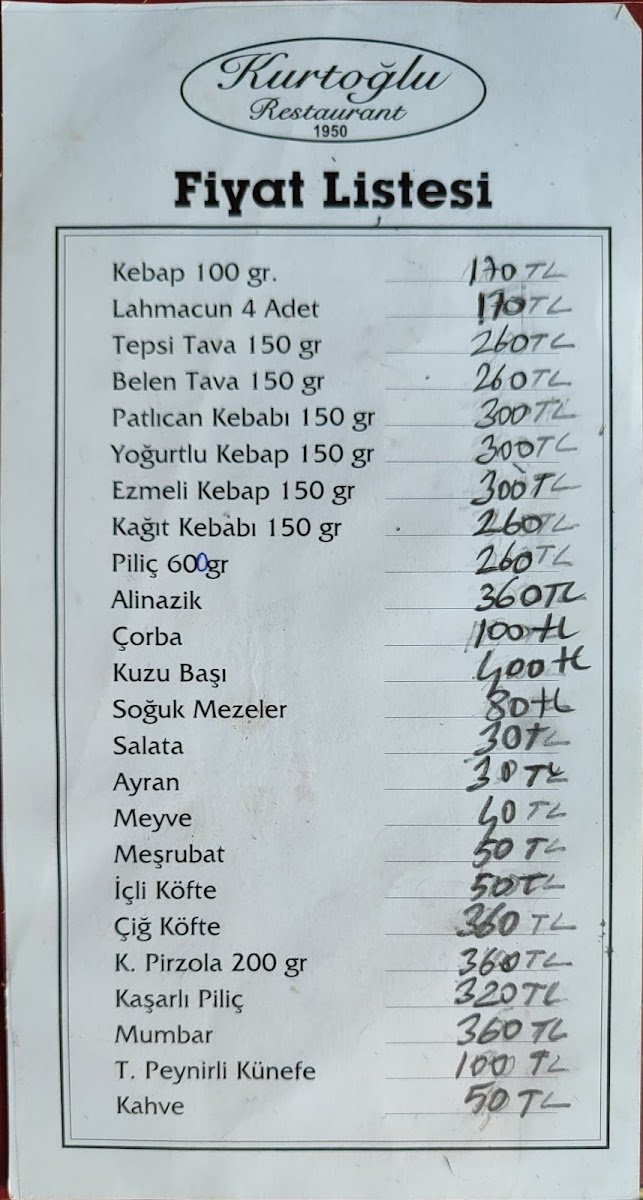 Kurtoğlu
Restaurant
1950
Fiyat Listesi
Kebap 100 gr. 170 TL
Lahmacun 4 Adet 170 TL
Tepsi Tava 150 gr 260 TL
Belen Tava 150 gr 260 TL
Patlıcan Kebabı 150 gr 300 TL
Yoğurtlu Kebap 150 gr 300 TL
Ezmeli Kebap 150 gr 300 TL
Kağıt Kebabı 150 gr 260 TL
Piliç 600gr 260 TL
Alinazik 360 TL
Çorba 100 tl
Kuzu Başı 400 tl
Soğuk Mezeler 80 tl
Salata 30 TL
Ayran 30 TL
Meyve 40 TL
Meşrubat 50 TL
İçli Köfte 50 TL
Çiğ Köfte 360 TL
K. Pirzola 200 gr 360 TL
Kaşarlı Piliç 320 TL
Mumbar 360 TL
T. Peynirli Künefe 100 TL
Kahve 50 TL